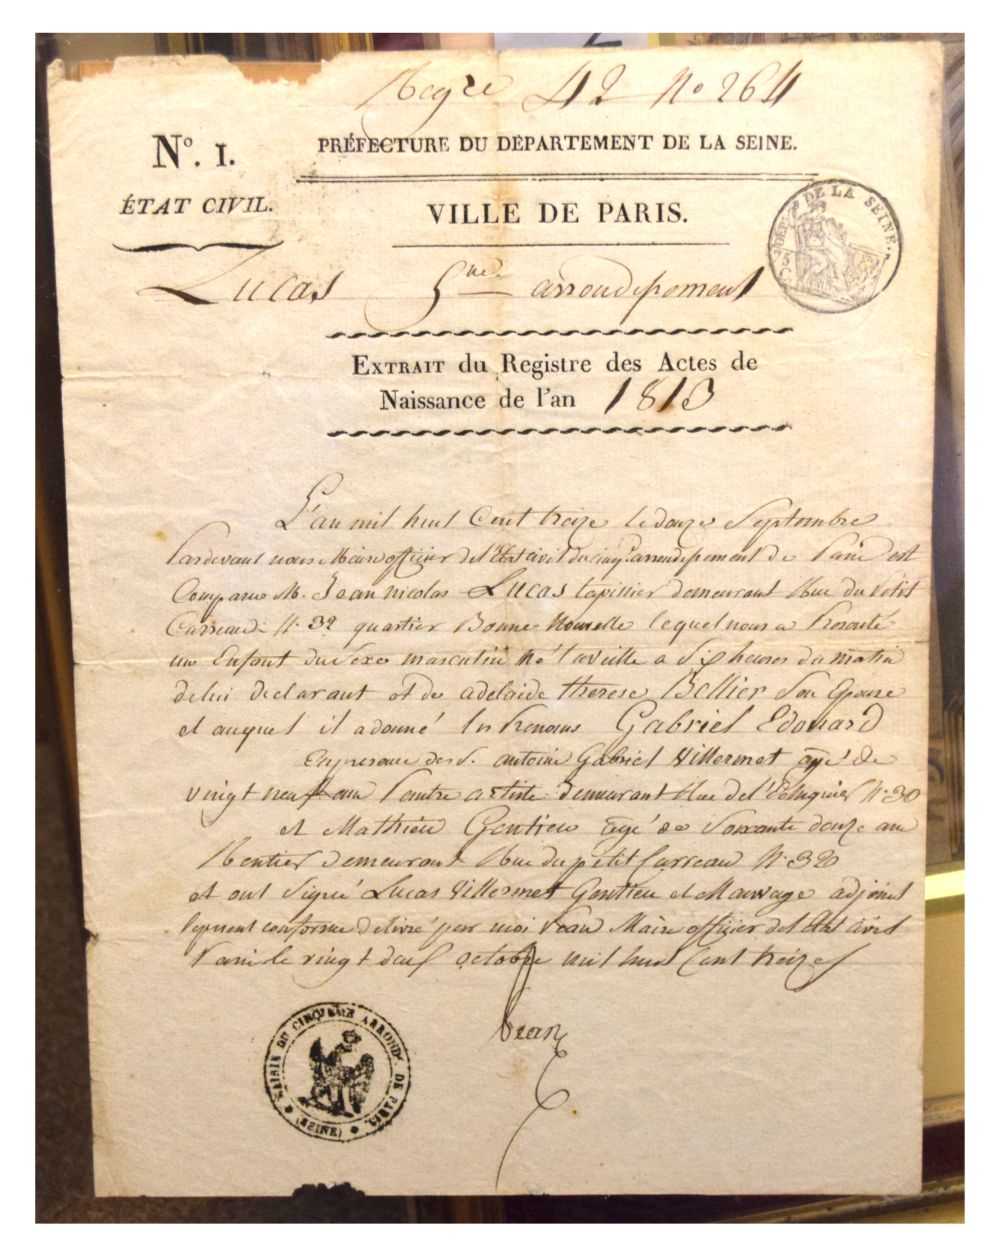 Regre 42 No 264
No. 1.
PRÉFECTURE DU DÉPARTEMENT DE LA SEINE.
ÉTAT CIVIL.
VILLE DE PARIS.
DE LA SEINE.
Lucas 5me arrondissement
EXTRAIT du Registre des Actes de
Naissance de l'an 1813
L'an mil huit Cent treize le douze Septembre
Pardevant nous Maire officier de l'Etat civil du cinq. arrondissement de Paris est
Comparu M. Jean nicolas Lucas tapissier demeurant Rue du petit
Carreau N. 32 quartier Bonne Nouvelle lequel nous a Presenté
un Enfant du Sexe masculin Né la veille a Six heures du matin
de lui declarant et de adelaide therese Bellier Son Epouse
et auquel il a donné les Prenoms Gabriel Edouard
En presence de S. antoine Gabriel Villermet agé de
vingt neuf ans Peintre artiste demeurant Rue de l'Echiquier N. 30
et Mathieu Gentieu agé de Soixante douze ans
Rentier demeurant Rue du petit Carreau N. 32
et ont Signé Lucas Villermet Gentieu et Mauvage adjoint
le present conforme delivré par moi Maire officier de l'Etat civil
Paris le vingt deux octobre mil huit Cent treize
MAIRIE DU CINQUIÈME ARROND.T DE PARIS.
(SEINE)